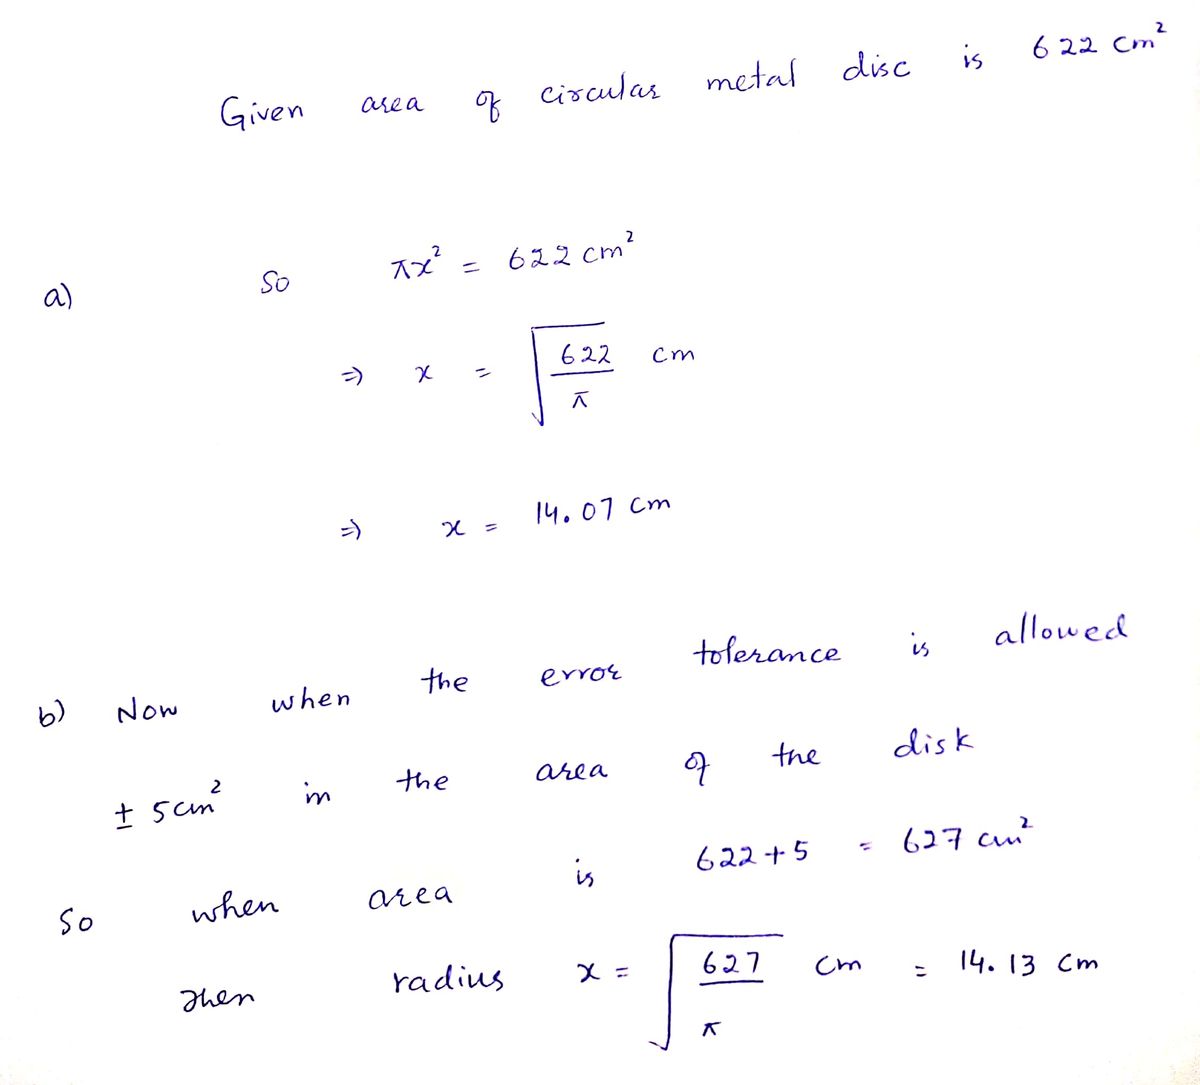 Given area of circular metal disc is 622 cm²
a) So πx² = 622 cm²
⇒ x = √(622/π) cm
⇒ x = 14.07 cm
b) Now when the error tolerance is allowed
± 5cm² in the area of the disk
So when area is 622+5 = 627 cm²
Then radius x = √(627/π) cm = 14.13 cm